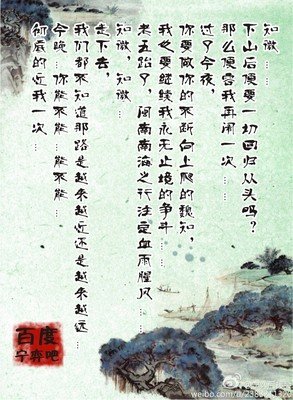 知微……
下山后便要一切回归从头吗？
那么便容我再闹一次……
过了今夜，
你要做你的不断向上爬的魏知，
我又要继续我永无止境的争斗……
老五跑了，闽南南海之行注定血雨腥风……
知微，知微……
走下去，
我们都不知道那路是越来越近还是越来越远……
今晚……你能不能……能不能……
彻底的近我一次……
百度
宁弈吧